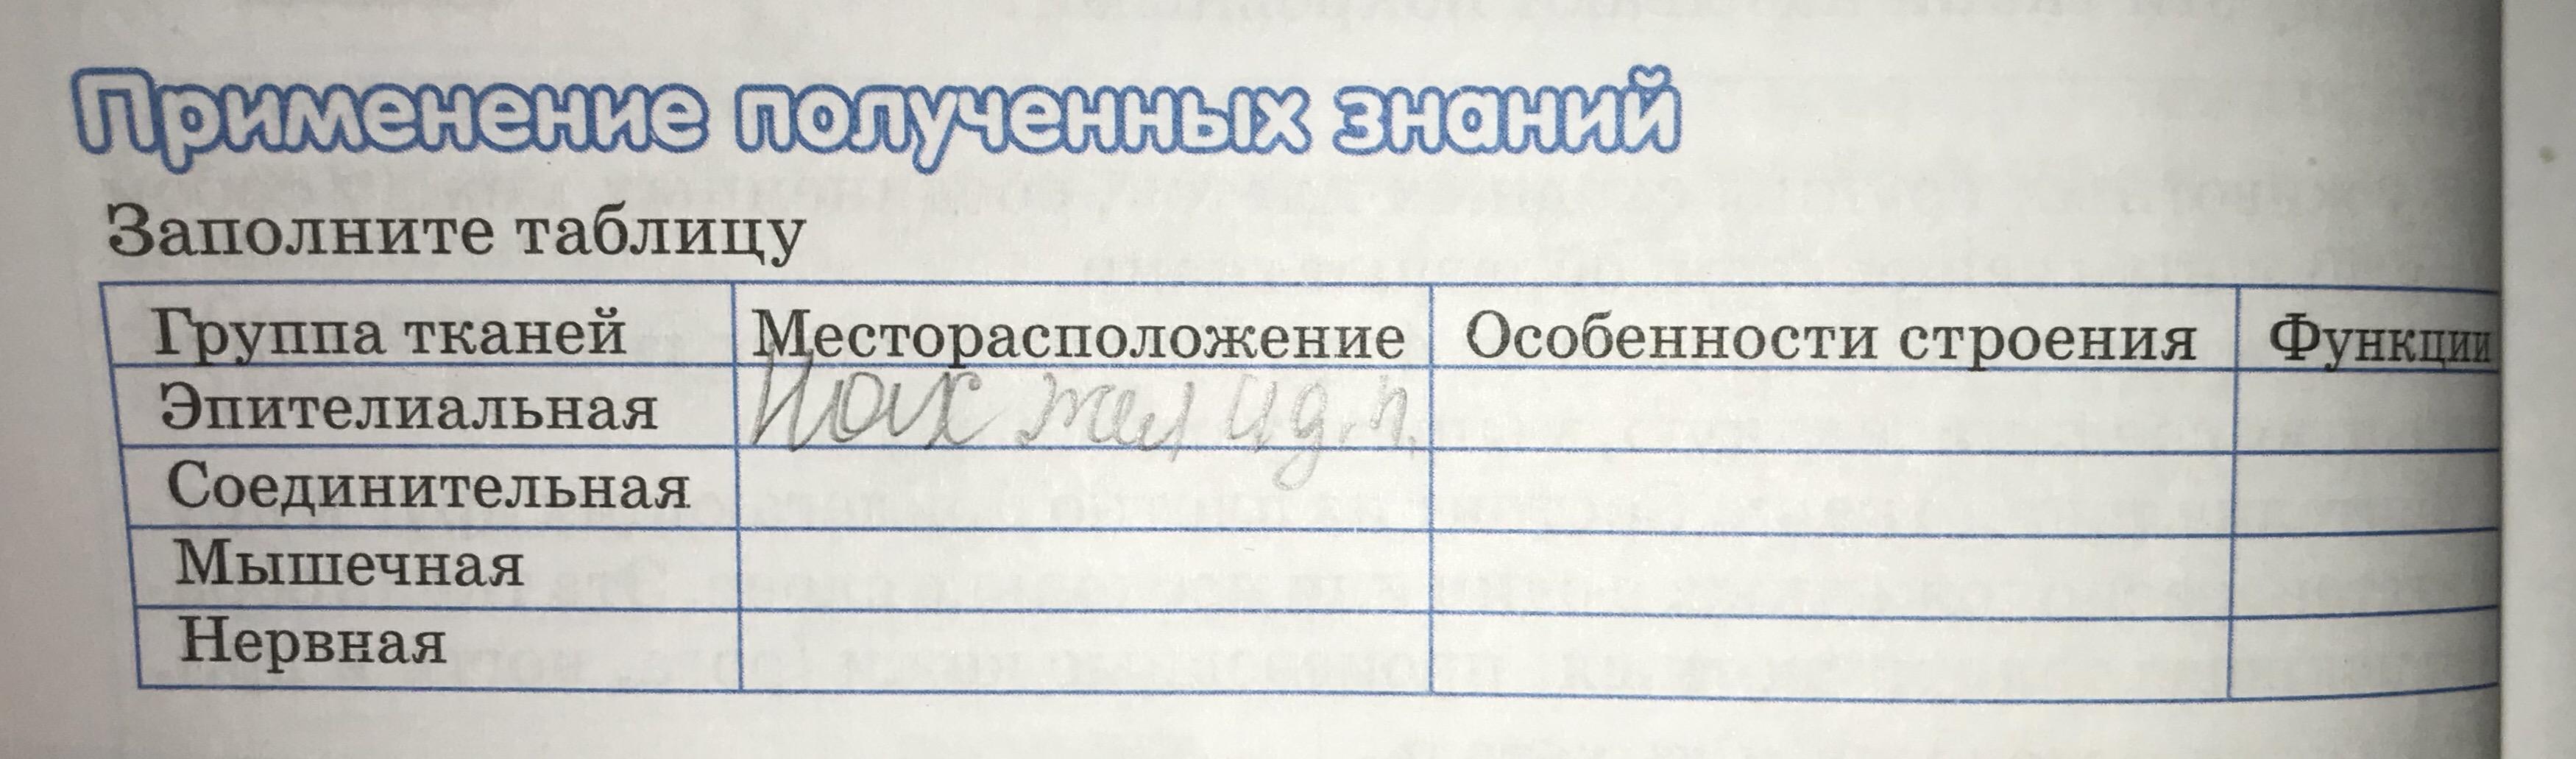 Применение полученных знаний
Заполните таблицу
Группа тканей Месторасположение Особенности строения Функции
Эпителиальная
Соединительная
Мышечная
Нервная